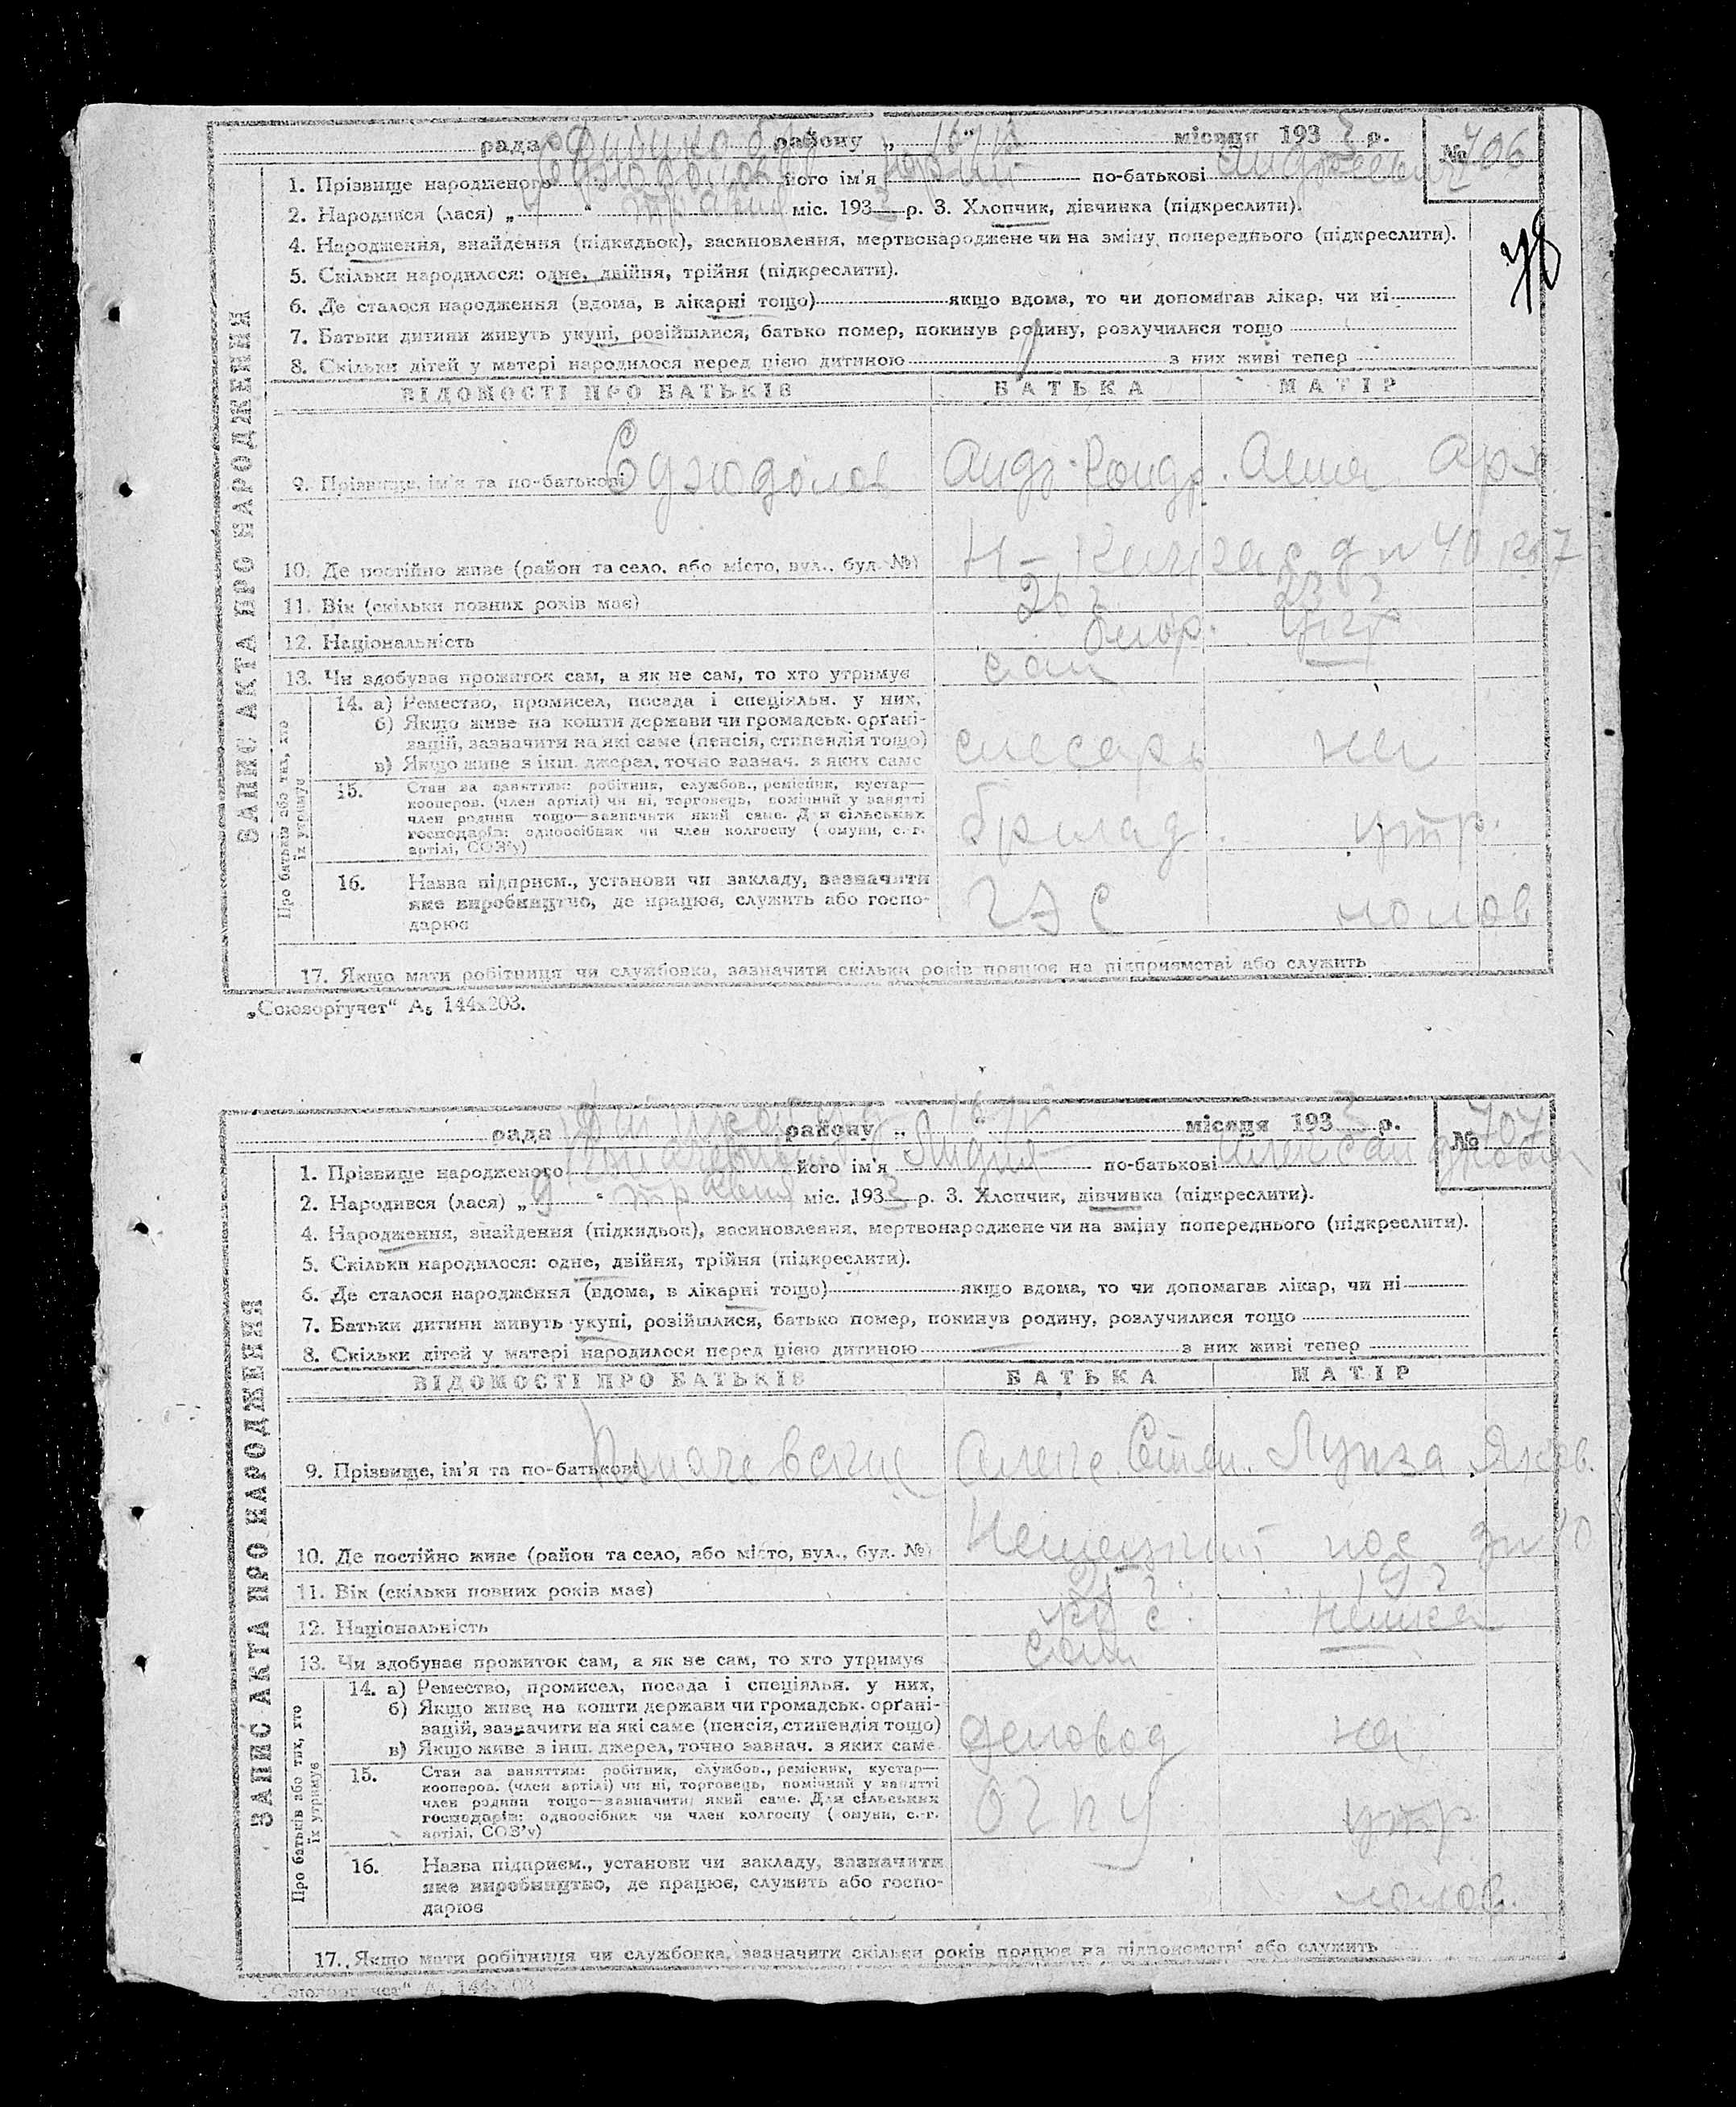 рада району „ 16 “ місяця 1933 р.
№ 706
1. Прізвище народженого його ім'я Юрий по-батькові Андреевич
2. Народився (лася) „ “ травня міс. 1933 р. 3. Хлопчик, дівчинка (підкреслити).
78
4. Народження, знайдення (підкидьок), засиновлення, мертвонароджене чи на зміну попереднього (підкреслити).
5. Скільки народилося: одне, двійня, трійня (підкреслити).
6. Де сталося народження (вдома, в лікарні тощо) якщо вдома, то чи допомагав лікар, чи ні
7. Батьки дитини живуть укупі, розійшлися, батько помер, покинув родину, розлучилися тощо
8. Скільки дітей у матері народилося перед цією дитиною з них живі тепер
ВІДОМОСТІ ПРО БАТЬКІВ БАТЬКА МАТІР
9. Прізвище, ім'я та по-батькові Суходолов Андр. Кондр. Анна Арх
10. Де постійно живе (район та село, або місто, вул., буд. №) Н-Кичкас д н 40
11. Вік (скільки повних років має) 26 г 23 г
12. Національність белор. укр
13. Чи здобуває прожиток сам, а як не сам, то хто утримує сам
ЗАПИС АКТА ПРО НАРОДЖЕННЯ
Про батьків або тих, хто їх утримує
14. а) Ремество, промисел, посада і спеціяльн. у них,
б) Якщо живе на кошти держави чи громадськ. орґані-
зацій, зазначити на які саме (пенсія, стипендія тощо)
в) Якщо живе з інш. джерел, точно зазнач. з яких саме
слесарь не
15. Стан за заняттям: робітник, службов., ремісник, кустар—
кооперов. (член артілі) чи ні, торговець, помічний у занятті
член родини тощо—зазначити який саме. Для сільських
господарів: одноосібник чи член колгоспу (комуни, с.-г.
артілі, СОЗ'у)
бригад. утр.
16. Назва підприєм., установи чи закладу, зазначити
яке виробництво, де працює, служить або госпо-
дарює
ГЭС чолов
17. Якщо мати робітниця чи службовка, зазначити скільки років працює на підприємстві або служить
„Союзоргучет“ А₅ 144x203.
рада району „ 16 “ місяця 1933 р.
№ 707
1. Прізвище народженого його ім'я Лидия по-батькові Александровна
2. Народився (лася) „ 9 “ травня міс. 1933 р. 3. Хлопчик, дівчинка (підкреслити).
4. Народження, знайдення (підкидьок), засиновлення, мертвонароджене чи на зміну попереднього (підкреслити).
5. Скільки народилося: одне, двійня, трійня (підкреслити).
6. Де сталося народження (вдома, в лікарні тощо) якщо вдома, то чи допомагав лікар, чи ні
7. Батьки дитини живуть укупі, розійшлися, батько помер, покинув родину, розлучилися тощо
8. Скільки дітей у матері народилося перед цією дитиною з них живі тепер
ВІДОМОСТІ ПРО БАТЬКІВ БАТЬКА МАТІР
9. Прізвище, ім'я та по-батькові Алекс Степ. Луиза Яков.
10. Де постійно живе (район та село, або місто, вул., буд. №) пос
11. Вік (скільки повних років має) 19 г
12. Національність рус. немка
13. Чи здобуває прожиток сам, а як не сам, то хто утримує сам
ЗАПИС АКТА ПРО НАРОДЖЕННЯ
Про батьків або тих, хто їх утримує
14. а) Ремество, промисел, посада і спеціяльн. у них,
б) Якщо живе на кошти держави чи громадськ. орґані-
зацій, зазначити на які саме (пенсія, стипендія тощо)
в) Якщо живе з інш. джерел, точно зазнач. з яких саме
деловод не
15. Стан за заняттям: робітник, службов., ремісник, кустар—
кооперов. (член артілі) чи ні, торговець, помічний у занятті
член родини тощо—зазначити який саме. Для сільських
господарів: одноосібник чи член колгоспу (комуни, с.-г.
артілі, СОЗ'у)
ОГПУ утр
16. Назва підприєм., установи чи закладу, зазначити
яке виробництво, де працює, служить або госпо-
дарює
чолов.
17. Якщо мати робітниця чи службовка, зазначити скільки років працює на підприємстві або служить
„Союзоргучет“ А₅ 144x203